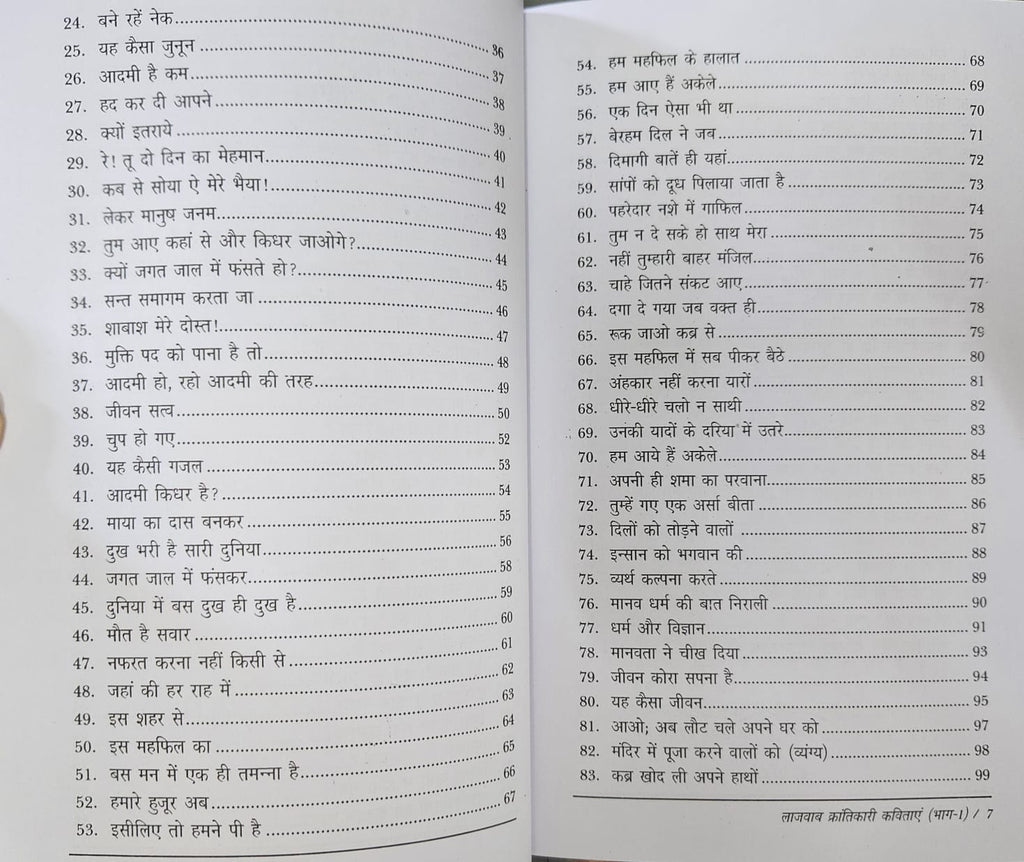 24. बने रहें नेक.......... 36
25. यह कैसा जुनून .......... 37
26. आदमी है कम.......... 38
27. हद कर दी आपने.......... 39
28. क्यों इतराये .......... 40
29. रे! तू दो दिन का मेहमान.......... 41
30. कब से सोया ऐ मेरे भैया!.......... 42
31. लेकर मानुष जनम.......... 43
32. तुम आए कहां से और किधर जाओगे?.......... 44
33. क्यों जगत जाल में फंसते हो?.......... 45
34. सन्त समागम करता जा .......... 46
35. शाबाश मेरे दोस्त!.......... 47
36. मुक्ति पद को पाना है तो.......... 48
37. आदमी हो, रहो आदमी की तरह.......... 49
38. जीवन सत्व.......... 50
39. चुप हो गए.......... 52
40. यह कैसी गजल .......... 53
41. आदमी किधर है?.......... 54
42. माया का दास बनकर .......... 55
43. दुख भरी है सारी दुनिया.......... 56
44. जगत जाल में फंसकर.......... 58
45. दुनिया में बस दुख ही दुख है.......... 59
46. मौत है सवार .......... 60
47. नफरत करना नहीं किसी से .......... 61
48. जहां की हर राह में .......... 62
49. इस शहर से.......... 63
50. इस महफिल का .......... 64
51. बस मन में एक ही तमन्ना है.......... 65
52. हमारे हुजूर अब.......... 66
53. इसीलिए तो हमने पी है .......... 67
54. हम महफिल के हालात .......... 68
55. हम आए हैं अकेले.......... 69
56. एक दिन ऐसा भी था .......... 70
57. बेरहम दिल ने जब.......... 71
58. दिमागी बातें ही यहां.......... 72
59. सांपों को दूध पिलाया जाता है .......... 73
60. पहरेदार नशे में गाफिल.......... 74
61. तुम न दे सके हो साथ मेरा .......... 75
62. नहीं तुम्हारी बाहर मंजिल.......... 76
63. चाहे जितने संकट आए.......... 77
64. दगा दे गया जब वक्त ही.......... 78
65. रूक जाओ कब्र से .......... 79
66. इस महफिल में सब पीकर बैठे .......... 80
67. अंहकार नहीं करना यारों.......... 81
68. धीरे-धीरे चलो न साथी .......... 82
69. उनकी यादों के दरिया में उतरे.......... 83
70. हम आये हैं अकेले.......... 84
71. अपनी ही शमा का परवाना.......... 85
72. तुम्हें गए एक अर्सा बीता .......... 86
73. दिलों को तोड़ने वालों .......... 87
74. इन्सान को भगवान की .......... 88
75. व्यर्थ कल्पना करते .......... 89
76. मानव धर्म की बात निराली .......... 90
77. धर्म और विज्ञान.......... 91
78. मानवता ने चीख दिया .......... 93
79. जीवन कोरा सपना है.......... 94
80. यह कैसा जीवन.......... 95
81. आओ; अब लौट चले अपने घर को .......... 97
82. मंदिर में पूजा करने वालों को (व्यंग्य).......... 98
83. कब्र खोद ली अपने हाथों .......... 99
लाजवाब क्रांतिकारी कविताएं (भाग-1) / 7